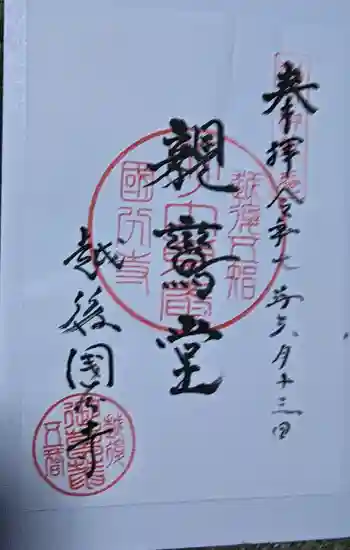 奉拝
令和七年六月十三日
親鸞堂
越後国分寺
越後五智
国分寺
越後
五智